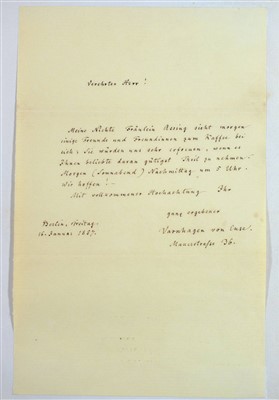 Verehrter Herr!
Meine Nichte Fräulein Assing sieht morgen
einige Freunde und Freundinnen zum Kaffee bei
sich; Sie würden uns sehr erfreuen, wenn es
Ihnen beliebte daran gütigst Theil zu nehmen.
Morgen (Sonnabend) Nachmittag um 5 Uhr.
Wir hoffen!
Mit vollkommener Hochachtung Ihr
ganz ergebener
Berlin, Freitag
16. Januar 1857.
Varnhagen von Ense.
Mauerstraße 36.